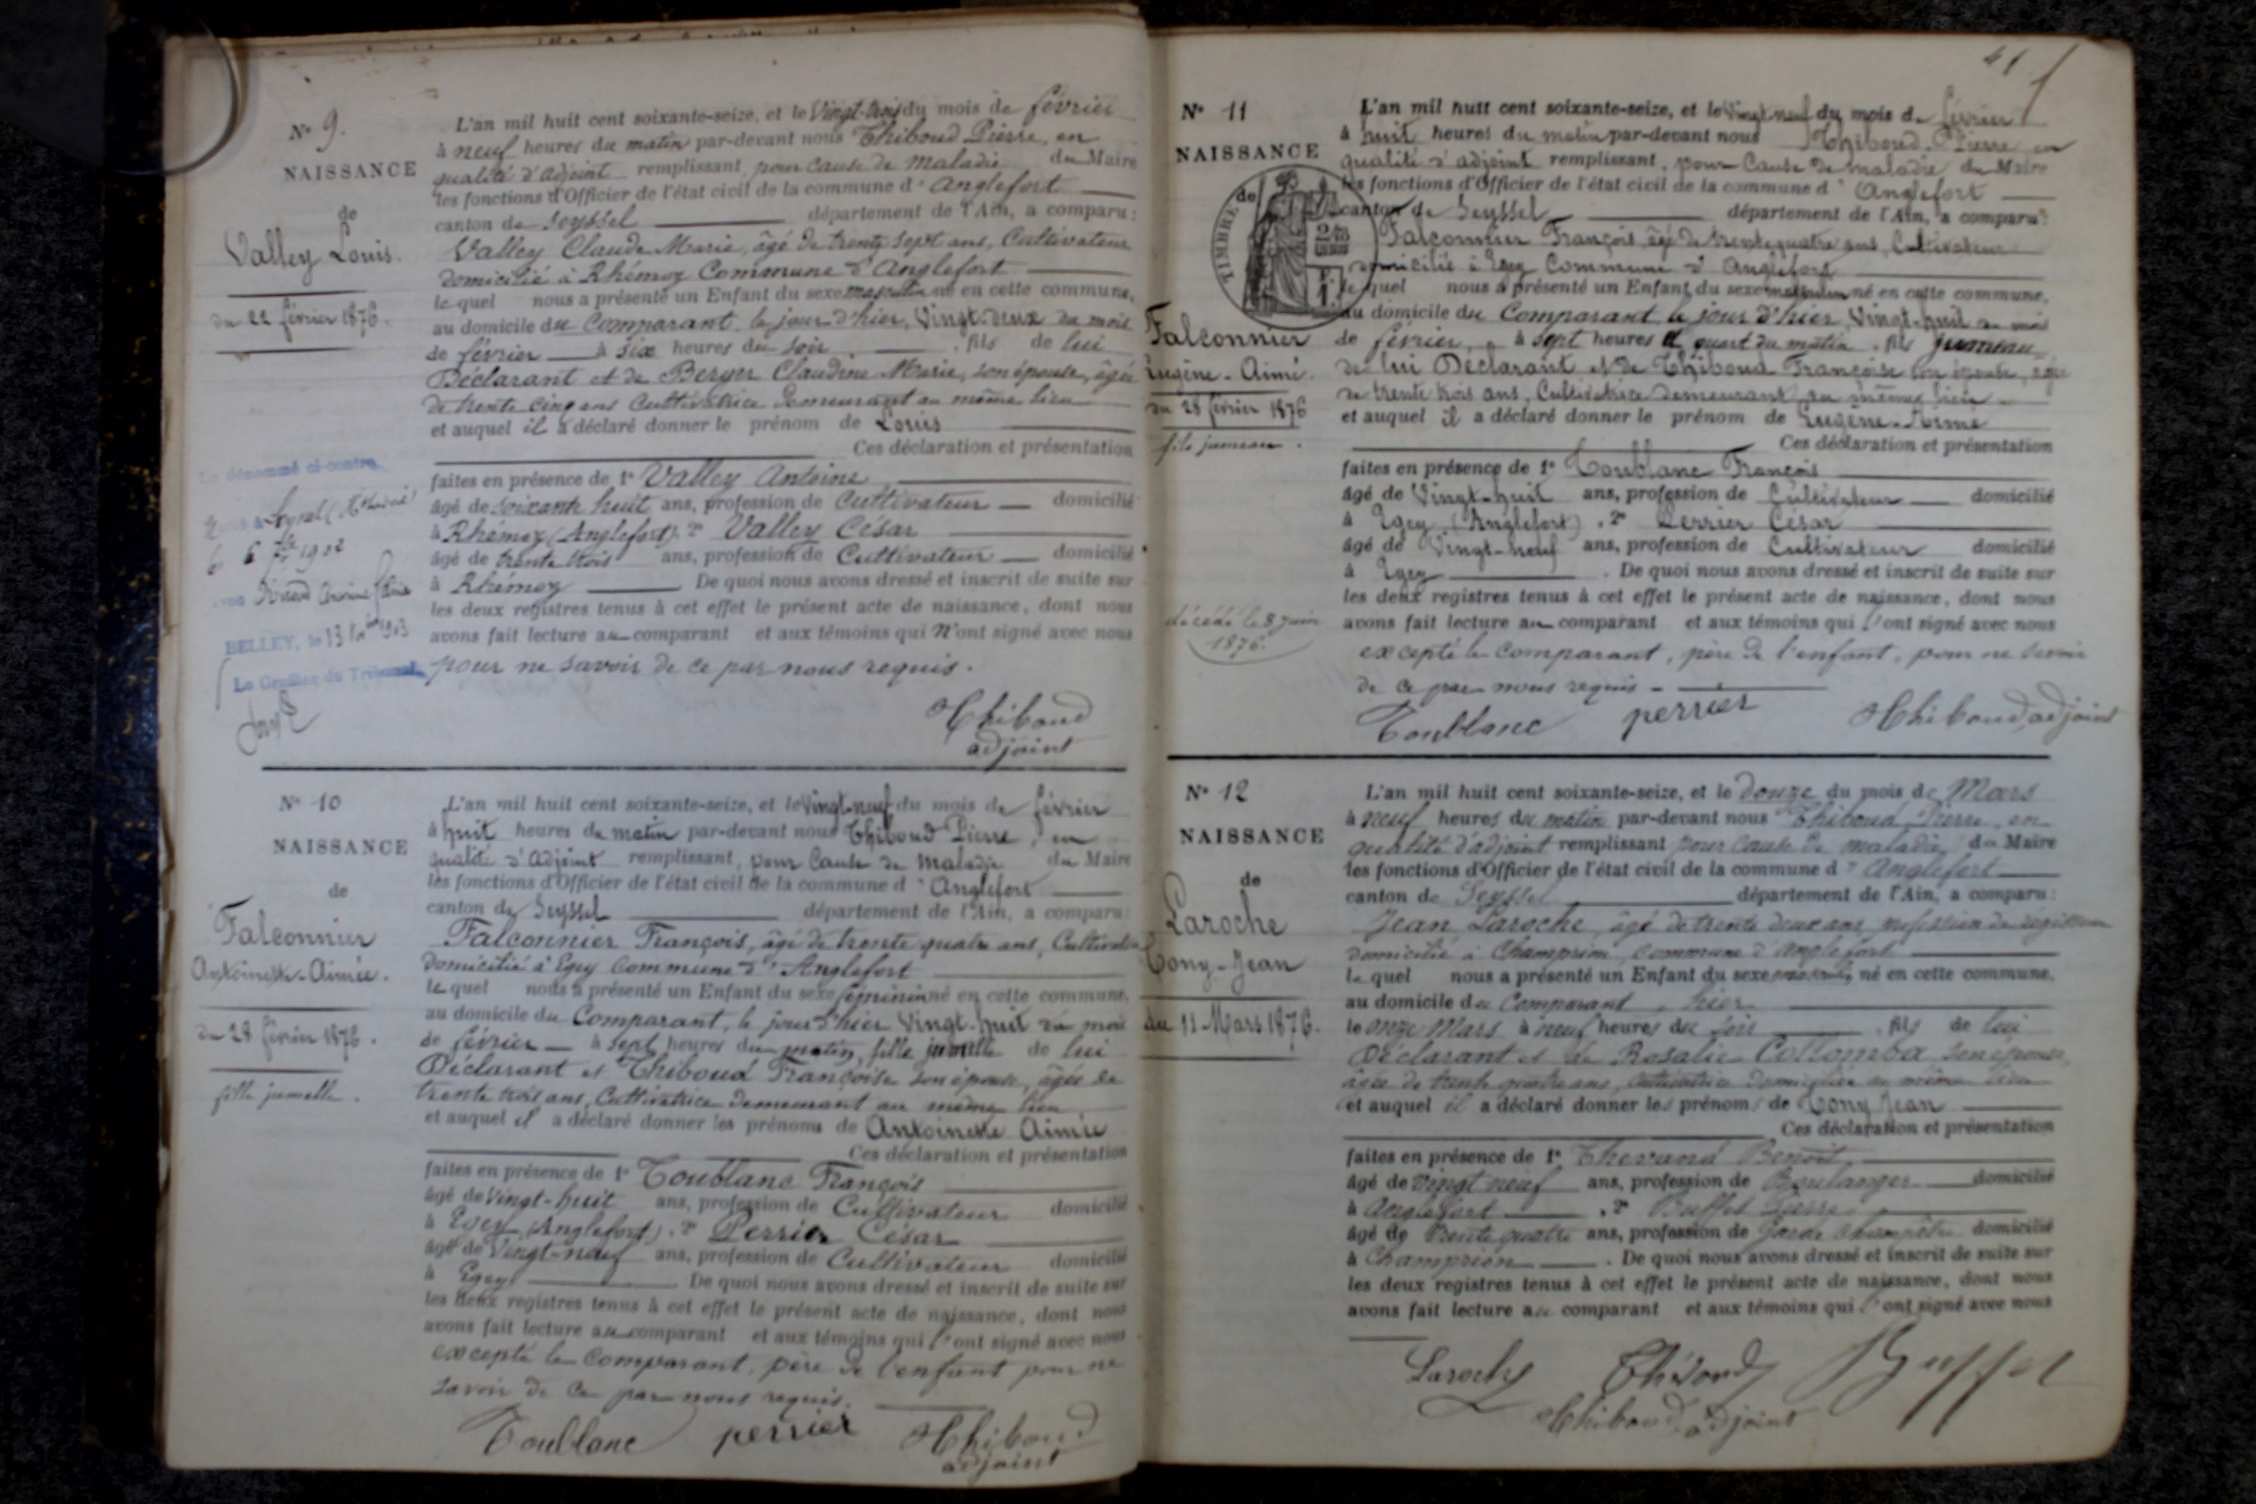 Nº 9.
NAISSANCE
de
Valley Louis.
du 22 février 1876.
L'an mil huit cent soixante-seize, et le vingt-trois du mois de février
à neuf heures du matin par-devant nous Thiboud Pierre, en
qualité d'adjoint remplissant, pour cause de maladie du Maire
les fonctions d'Officier de l'état civil de la commune d'Anglefort
canton de Seyssel département de l'Ain, a comparu:
Valley Claude Marie, âgé de trente sept ans, Cultivateur
domicilié à Rhémoz Commune d'Anglefort
lequel nous a présenté un Enfant du sexe masculin né en cette commune,
au domicile du Comparant, le jour d'hier, Vingt-deux du mois
de février à six heures du soir, fils de lui
Déclarant et de Berger Claudine Marie, son épouse, âgée
de trente cinq ans Cultivatrice demeurant au même lieu
et auquel il a déclaré donner le prénom de Louis
Ces déclaration et présentation
faites en présence de 1º Valley Antoine
âgé de soixante huit ans, profession de Cultivateur domicilié
à Rhémoz (Anglefort). 2º Valley César
âgé de trente trois ans, profession de Cultivateur domicilié
à Rhémoz De quoi nous avons dressé et inscrit de suite sur
les deux registres tenus à cet effet le présent acte de naissance, dont nous
avons fait lecture au comparant et aux témoins qui n'ont signé avec nous
pour ne savoir de ce par nous requis.
Thiboud
adjoint
Le dénommé ci-contre
le 6 1902
BELLEY, le 13 1903
Le Greffier du Tribunal,
Nº 10
NAISSANCE
de
Falconnier
Antoinette-Aimée.
du 28 février 1876.
fille jumelle.
L'an mil huit cent soixante-seize, et le vingt-neuf du mois de février
à huit heures du matin par-devant nous Thiboud Pierre, en
qualité d'adjoint remplissant, pour cause de maladie du Maire
les fonctions d'Officier de l'état civil de la commune d'Anglefort
canton de Seyssel département de l'Ain, a comparu:
Falconnier François, âgé de trente quatre ans, Cultivateur
domicilié à Egey Commune d'Anglefort
lequel nous a présenté un Enfant du sexe féminin né en cette commune,
au domicile du Comparant, le jour d'hier Vingt-huit du mois
de février à sept heures du matin, fille jumelle de lui
Déclarant et Thiboud Françoise son épouse, âgée de
trente trois ans, Cultivatrice demeurant au même lieu
et auquel il a déclaré donner les prénoms de Antoinette Aimée
Ces déclaration et présentation
faites en présence de 1º Toublanc François
âgé de vingt-huit ans, profession de Cultivateur domicilié
à Egey (Anglefort). 2º Perrier César
âgé de vingt-neuf ans, profession de Cultivateur domicilié
à Egey De quoi nous avons dressé et inscrit de suite sur
les deux registres tenus à cet effet le présent acte de naissance, dont nous
avons fait lecture au comparant et aux témoins qui l'ont signé avec nous
excepté le Comparant, père de l'enfant pour ne
savoir de ce par nous requis.
Toublanc perrier Thiboud
adjoint
41
Nº 11
NAISSANCE
de
TIMBRE
Falconnier
Eugène-Aimé.
du 28 février 1876
fils jumeau.
décédé le 8 juin
1876.
L'an mil huit cent soixante-seize, et le vingt neuf du mois de février
à huit heures du matin par-devant nous Thiboud Pierre en
qualité d'adjoint remplissant, pour cause de maladie du Maire
les fonctions d'Officier de l'état civil de la commune d'Anglefort
canton de Seyssel département de l'Ain, a comparu:
Falconnier François âgé de trente quatre ans, Cultivateur
domicilié à Egey Commune d'Anglefort
lequel nous a présenté un Enfant du sexe masculin né en cette commune,
au domicile du Comparant, le jour d'hier, Vingt-huit du mois
de février, à sept heures et quart du matin, fils jumeau
de lui Déclarant et de Thiboud Françoise son épouse, âgée
de trente trois ans, Cultivatrice demeurant au même lieu
et auquel il a déclaré donner le prénom de Eugène-Aimé
Ces déclaration et présentation
faites en présence de 1º Toublanc François
âgé de Vingt-huit ans, profession de Cultivateur domicilié
à Egey (Anglefort). 2º Perrier César
âgé de Vingt-neuf ans, profession de Cultivateur domicilié
à Egey. De quoi nous avons dressé et inscrit de suite sur
les deux registres tenus à cet effet le présent acte de naissance, dont nous
avons fait lecture au comparant et aux témoins qui l'ont signé avec nous
excepté le comparant, père de l'enfant, pour ne savoir
de ce par nous requis
Toublanc perrier Thiboud adjoint
Nº 12
NAISSANCE
de
Laroche
Tony-Jean
du 11 Mars 1876.
L'an mil huit cent soixante-seize, et le douze du mois de Mars
à neuf heures du matin par-devant nous Thiboud Pierre, en
qualité d'adjoint remplissant pour cause de maladie du Maire
les fonctions d'Officier de l'état civil de la commune d'Anglefort
canton de Seyssel département de l'Ain, a comparu:
Jean Laroche, âgé de trente deux ans, profession de régisseur
domicilié à Champrion, commune d'Anglefort
lequel nous a présenté un Enfant du sexe masculin, né en cette commune,
au domicile du Comparant, hier
le onze Mars à neuf heures du soir, fils de lui
Déclarant et de Rosalie Collomba son épouse,
âgée de trente quatre ans, cultivatrice domiciliée au même lieu
et auquel il a déclaré donner les prénoms de Tony Jean
Ces déclaration et présentation
faites en présence de 1º Thevand Benoit
âgé de vingt neuf ans, profession de Boulanger domicilié
à Anglefort, 2º Buffet Pierre
âgé de trente quatre ans, profession de Garde champêtre domicilié
à Champrion. De quoi nous avons dressé et inscrit de suite sur
les deux registres tenus à cet effet le présent acte de naissance, dont nous
avons fait lecture au comparant et aux témoins qui l'ont signé avec nous
Laroche Buffet
Thiboud adjoint